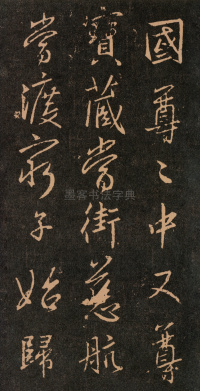 國尊〻中又尊
寶藏當街慈航
當渡窮子始歸
墨客书法字典